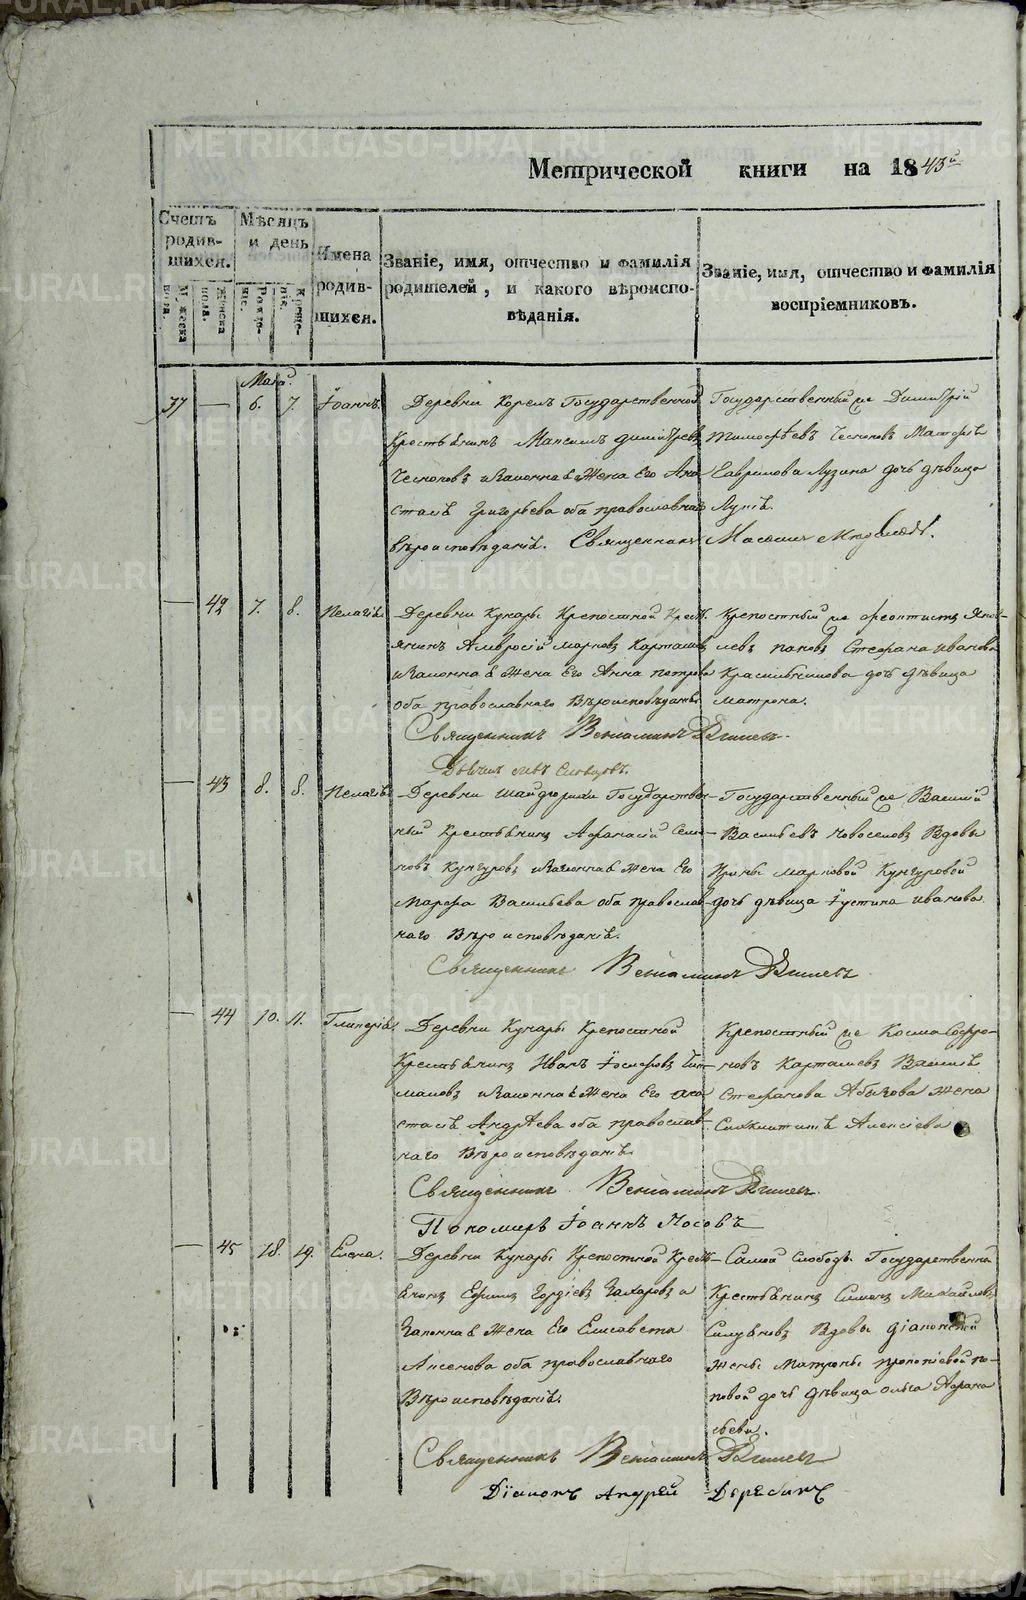 Метрической книги на 1843й
Счетъ родив-шихся.
Мѣсяцъ и день
Имена родив-шихся.
Званіе, имя, отчество и фамилія родителей, и какого вѣроиспо-вѣданія.
Званіе, имя, отчество и фамилія воспріемниковъ.
Мужеска пола.
Женска пола.
Рожде-ніе.
Креще-ніе.
Маія
37 — 6. 7. Іоаннъ.
Деревни Корелъ Государственной
Крестьянинъ Максимъ Димитріевъ
Чесноковъ и Законная Жена Его Ана
стасія Григорьева оба православнаго
вѣроисповѣданія. Священникъ
Государственный же Димитрій
Тимофѣевъ Чесноковъ Матѳея
Гаврилова Лузина дочь дѣвица
— 42 7. 8. Пелагія.
Деревни Кунары Крепостной Крест
янинъ Амвросій Марковъ Карташев
и Законная Жена Его Анна Петрова
оба православнаго Вѣроисповѣданія
Священникъ Веніаминъ
Крепостный же Феоктистъ Яков
левъ Поповъ Стефана Иванова
Красильникова дочь дѣвица
Матрона.
— 43 8. 8. Пелагія.
Деревни Шайдурихи Государствен
ный Крестьянинъ Афанасій Семе
новъ Кунгуровъ и Законная Жена Его
Марфа Васильева оба православ
наго Вѣроисповѣданія.
Священникъ Веніаминъ
Государственный же Василій
Васильевъ Новоселовъ Вдовы
Ирины Марковой Кунгуровой
дочь дѣвица Іустина Иванова
— 44 10. 11. Гликерія.
Деревни Кунары Крепостной
Крестьянинъ Иванъ Іосифовъ
и Законная Жена Его Ана
стасія Андреева оба православ
наго Вѣроисповѣданія
Священникъ Веніаминъ
Пономарь Іоаннъ Носовъ
Крепостный же Косма Софро-
новъ Карташевъ Василія
Стефанова Абызова Жена
Синклитикія Алексіева
— 45 18. 19. Елена.
Деревни Кунары Крепостной Крест
янинъ Ефимъ Гордіевъ Захаровъ и
Законная Жена Его Елисавета
Аксенова оба православнаго
Вѣроисповѣданія.
Священникъ Веніаминъ
Діаконъ Андрей Дерябинъ
Самой Слободы Государственный
Крестьянинъ Симонъ Михайловъ
Вдовы Діаконской
Жены Матроны Прокопіевой По-
повой дочь дѣвица Ольга Афана
сьева.
METRIKI.GASO-URAL.RU